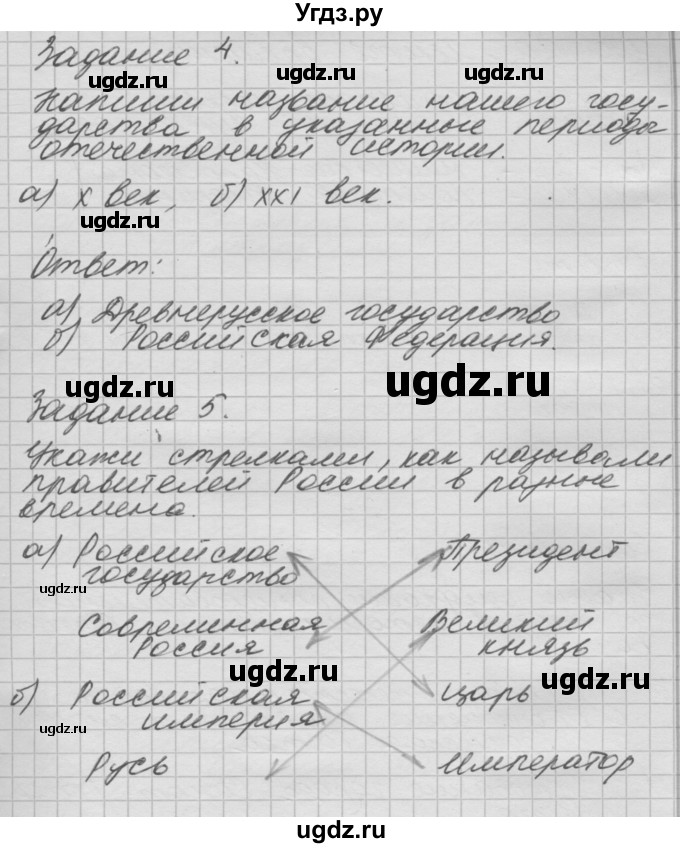 Угдз.ру
Задание 4.
Напиши название нашего госу-
дарства в указанные периоды
отечественной истории.
а) X век, б) XXI век.
Ответ:
а) Древнерусское государство
б) Российская Федерация.
Задание 5.
Укажи стрелками, как называли
правителей России в разные
времена.
а) Российское
государство
Президент
Современная
Россия
Великий
князь
б) Российская
империя
Царь
Русь
Император
ugdz.ru
ugdz.ru
ugdz.ru
ugdz.ru
ugdz.ru
ugdz.ru
ugdz.ru
ugdz.ru
ugdz.ru
ugdz.ru
ugdz.ru